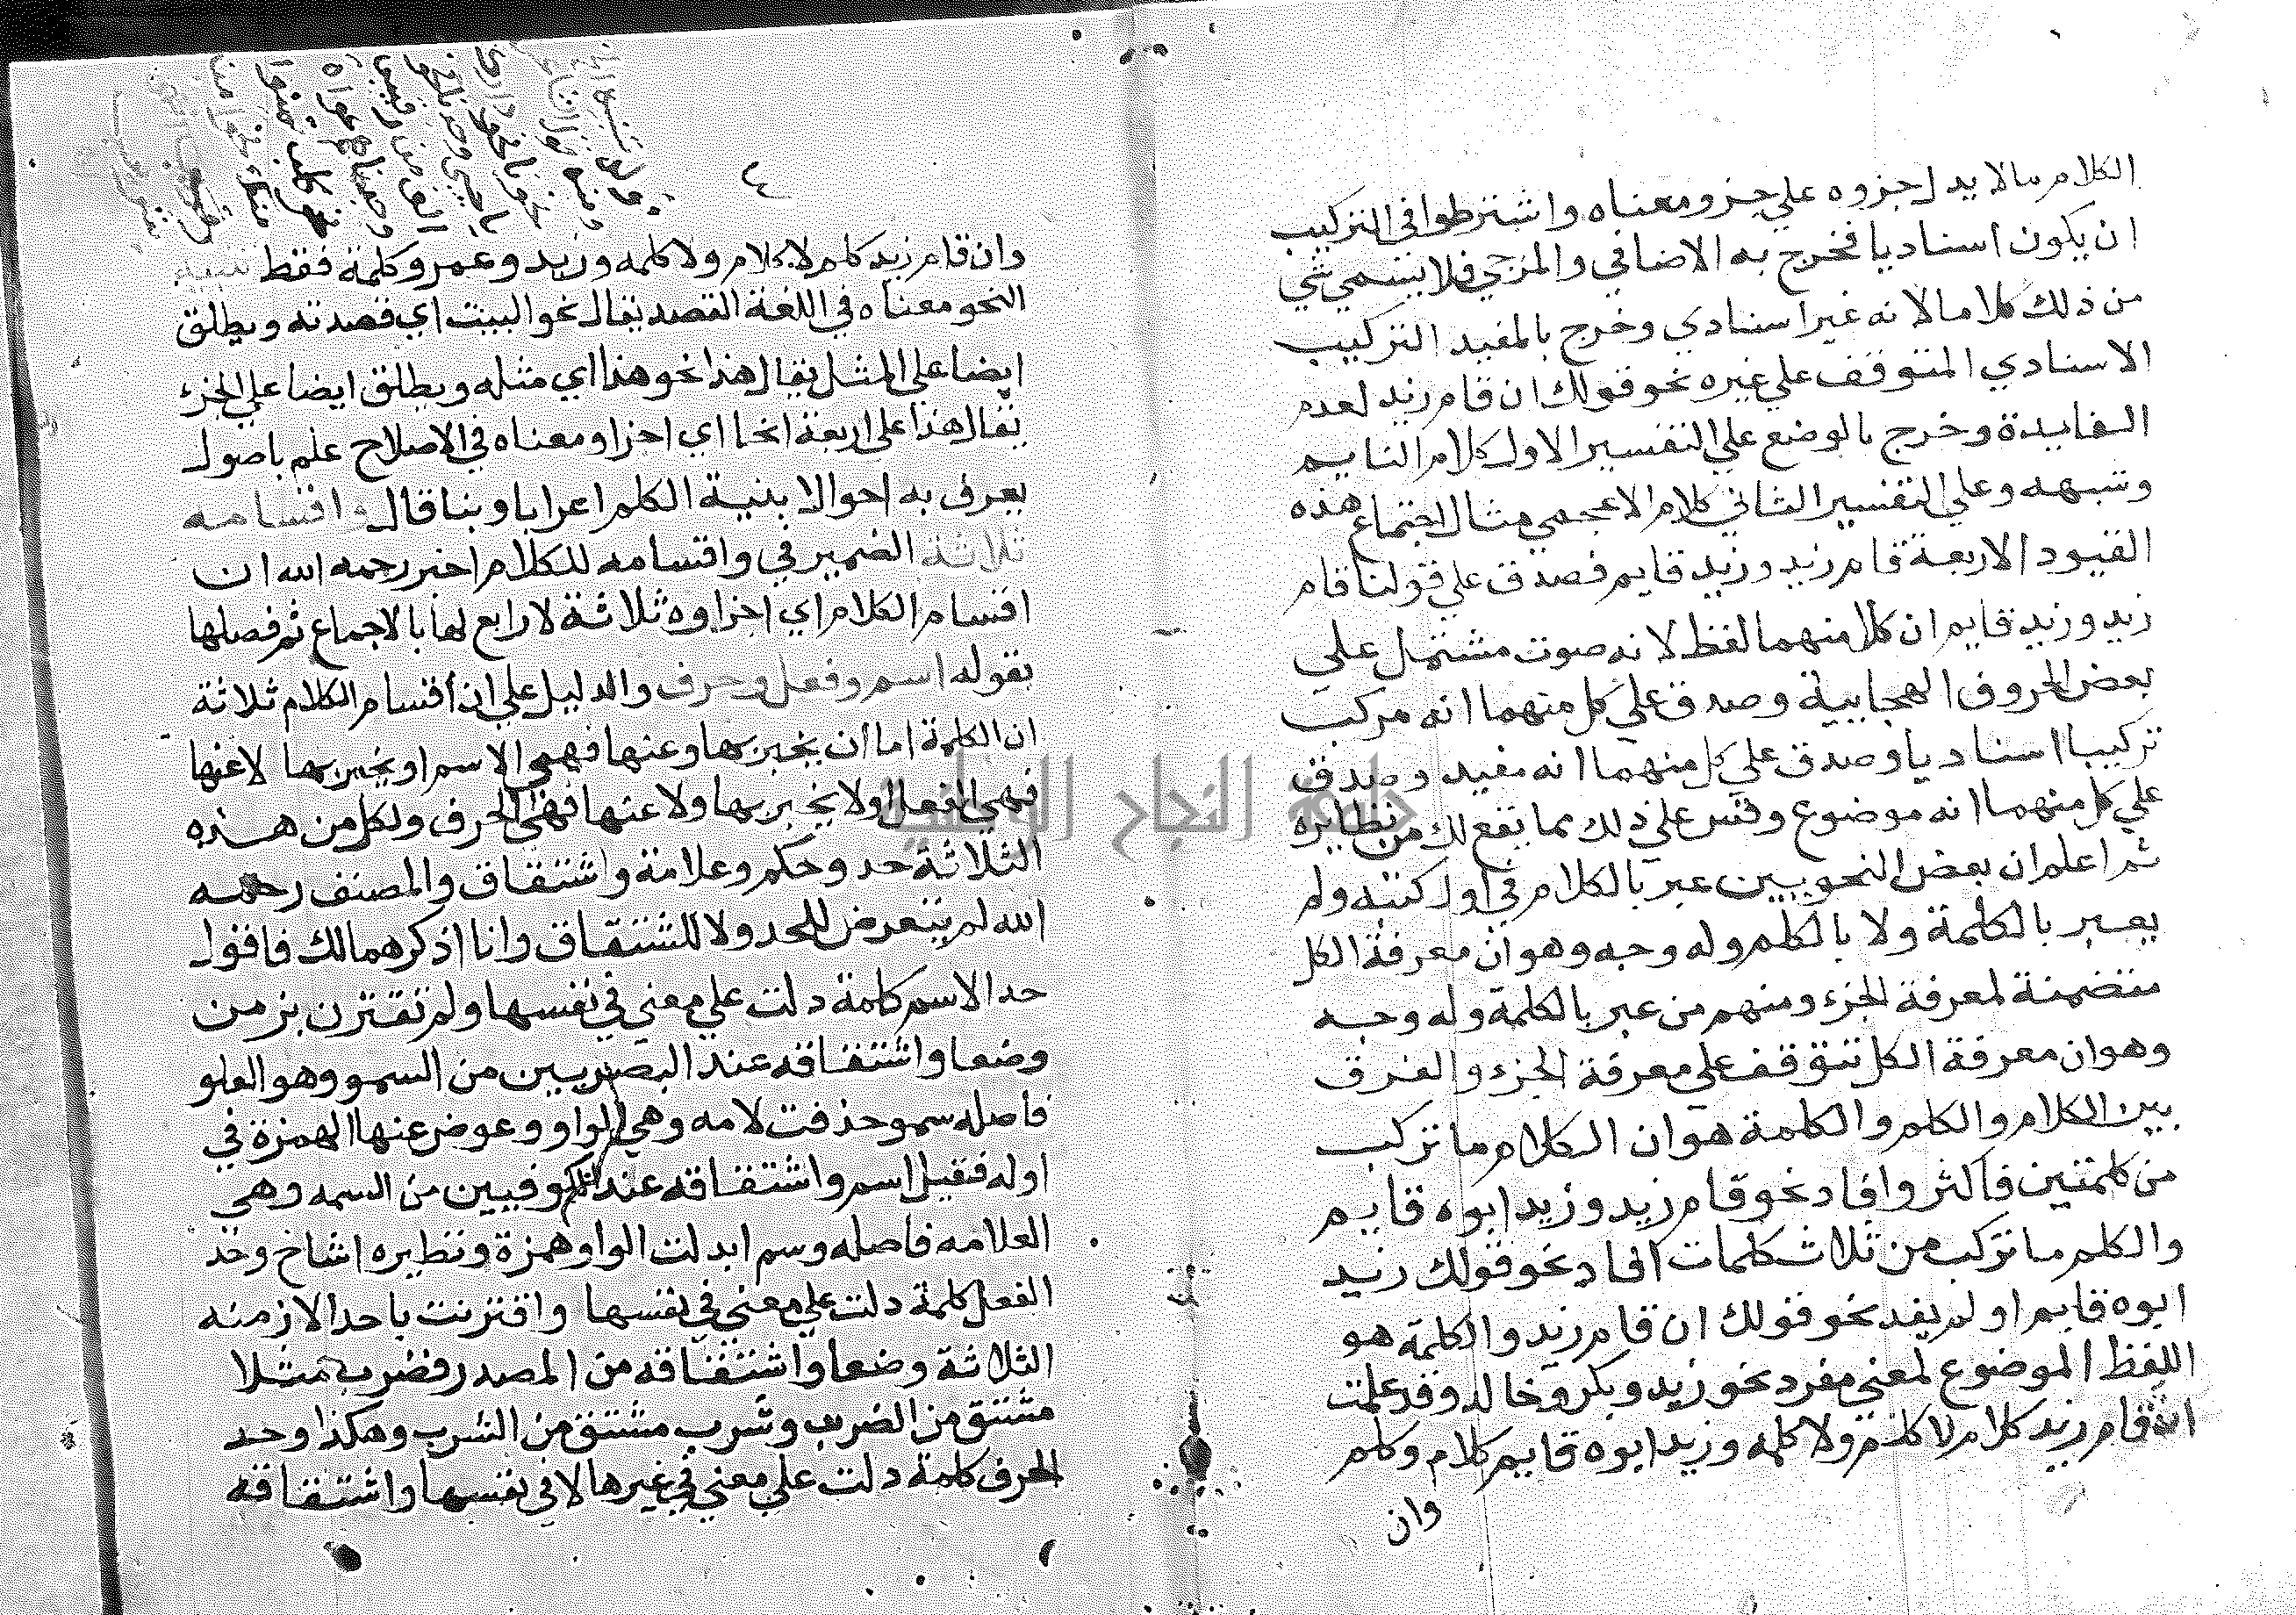 الكلام ما لا يدل جزوه علي جزو معناه واشترطوا في التركيب
ان يكون اسناديا فخرج به الاضافي والمزجي فلا يسمي شي
من ذلك كلاما لانه غير اسنادي وخرج بالمفيد التركيب
الاسنادي المتوقف علي غيره نحو قولك ان قام زيد لعدم
الفايدة وخرج بالوضع علي التفسير الاول كلام النايم
وشبهه وعلي التفسير الثاني كلام الاعجمي مثال اجتماع هذه
القيود الاربعة قام زيد وزيد قايم فصدق علي قولنا قام
زيد وزيد قايم ان كلا منهما لفظ لانه صوت مشتمل علي
بعض الحروف الهجايية وصدق علي كل منهما انه مركب
تركيبا اسناديا وصدق علي كل منهما انه مفيد وصدق
علي كل منهما انه موضوع وقس علي ذلك مما يقع لك من نظايره
ثم اعلم ان بعض النحويين عبر بالكلام في اول كتبه ولم
يعبر بالكلمة ولا بالكلم وله وجه وهو ان معرفة الكل
متضمنة لمعرفة الجزء ومنهم من عبر بالكلمة وله وجه
وهو ان معرفة الكل تتوقف علي معرفة الجزء والفرق
بين الكلام والكلم والكلمة هو ان الكلام ما تركب
من كلمتين فاكثر وافاد نحو قام زيد وزيد ابوه قايم
والكلم ما تركب من ثلاث كلمات افاد نحو قولك زيد
ابوه قايم او لم يفد نحو قولك ان قام زيد والكلمة هو
اللفظ الموضوع لمعني مفرد نحو زيد وبكر وخالد وقد علمت
ان قام زيد كلام لا كلم ولا كلمه وزيد ابوه قايم كلام وكلم
وان
٤
وان قام زيد كلم لا كلام ولا كلمه وزيد وعمرو كلمة فقط تنبيه
النحو معناه في اللغة القصد يقال نحو البيت اي قصدته ويطلق
ايضا علي المثل يقال هذا نحو هذا اي مثله ويطلق ايضا علي الجزء
يقال هذا علي اربعة انحا اي اجزا ومعناه في الاصلاح علم باصول
يعرف به احوال ابنية الكلم اعرابا وبنا قال واقسامه
ثلاثة الضمير في واقسامه للكلام اخبر رحمه الله ان
اقسام الكلام اي اجزاوه ثلاثة لا رابع لها بالاجماع ثم فصلها
بقوله اسم وفعل وحرف والدليل علي ان أقسام الكلام ثلاثة
ان الكلمة اما ان يخبر بها وعنها فهي الاسم او يخبر بها لا عنها
فهي الفعل او لا يخبر بها ولا عنها فهي الحرف ولكل من هذه
الثلاثة حد وحكم وعلامة واشتقاق والمصنف رحمه
الله لم يتعرض للحد ولا للاشتقاق وانا اذكرهما لك فاقول
حد الاسم كلمة دلت علي معني في نفسها ولم تقترن بزمن
وضعا واشتقاقه عند البصريين من السمو وهو العلو
فاصله سمو حذفت لامه وهي الواو وعوض عنها الهمزة في
اوله فقيل اسم واشتقاقه عند الكوفيين من السمه وهي
العلامه فاصله وسم ابدلت الواو همزة ونظيره اشاح وحد
الفعل كلمة دلت علي معني في نفسها واقترنت باحد الازمنه
الثلاثة وضعا واشتقاقه من المصدر فضرب مثلا
مشتق من الضرب وشرب مشتق من الشرب وهكذا وحد
الحرف كلمة دلت علي معني في غيرها لا في نفسها واشتقاقه
جامعة النجاح الوطنية